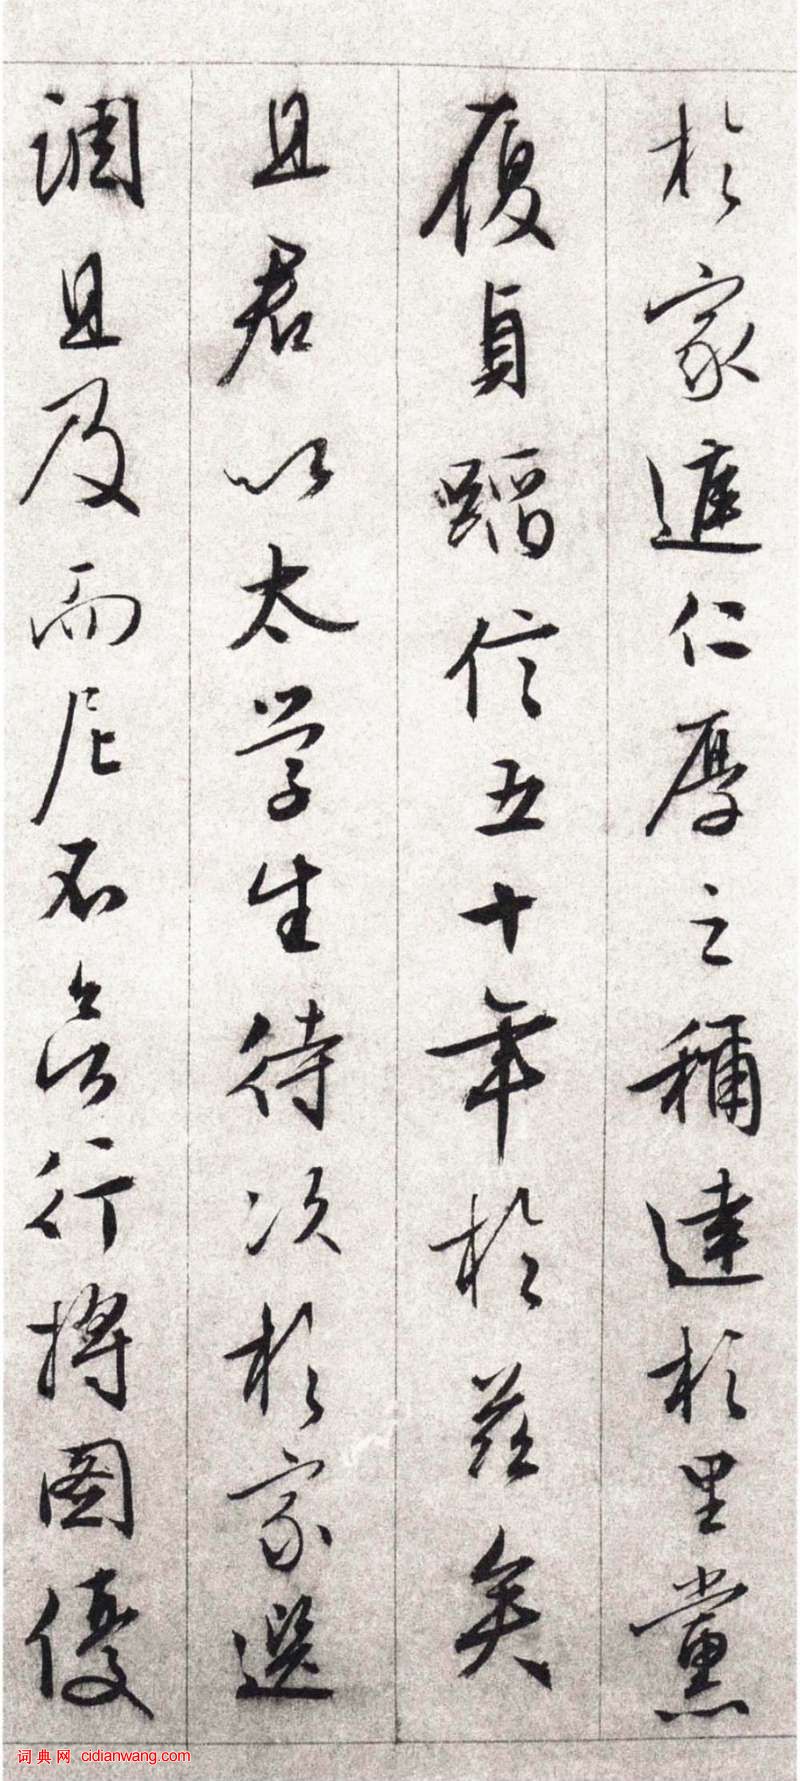 於家遜仁厚之稱達於里黨
履貞蹈信五十年於茲矣
且君以太學生待次於家選
調且及而尼不果行將圖優
词典网 cidianwang.com